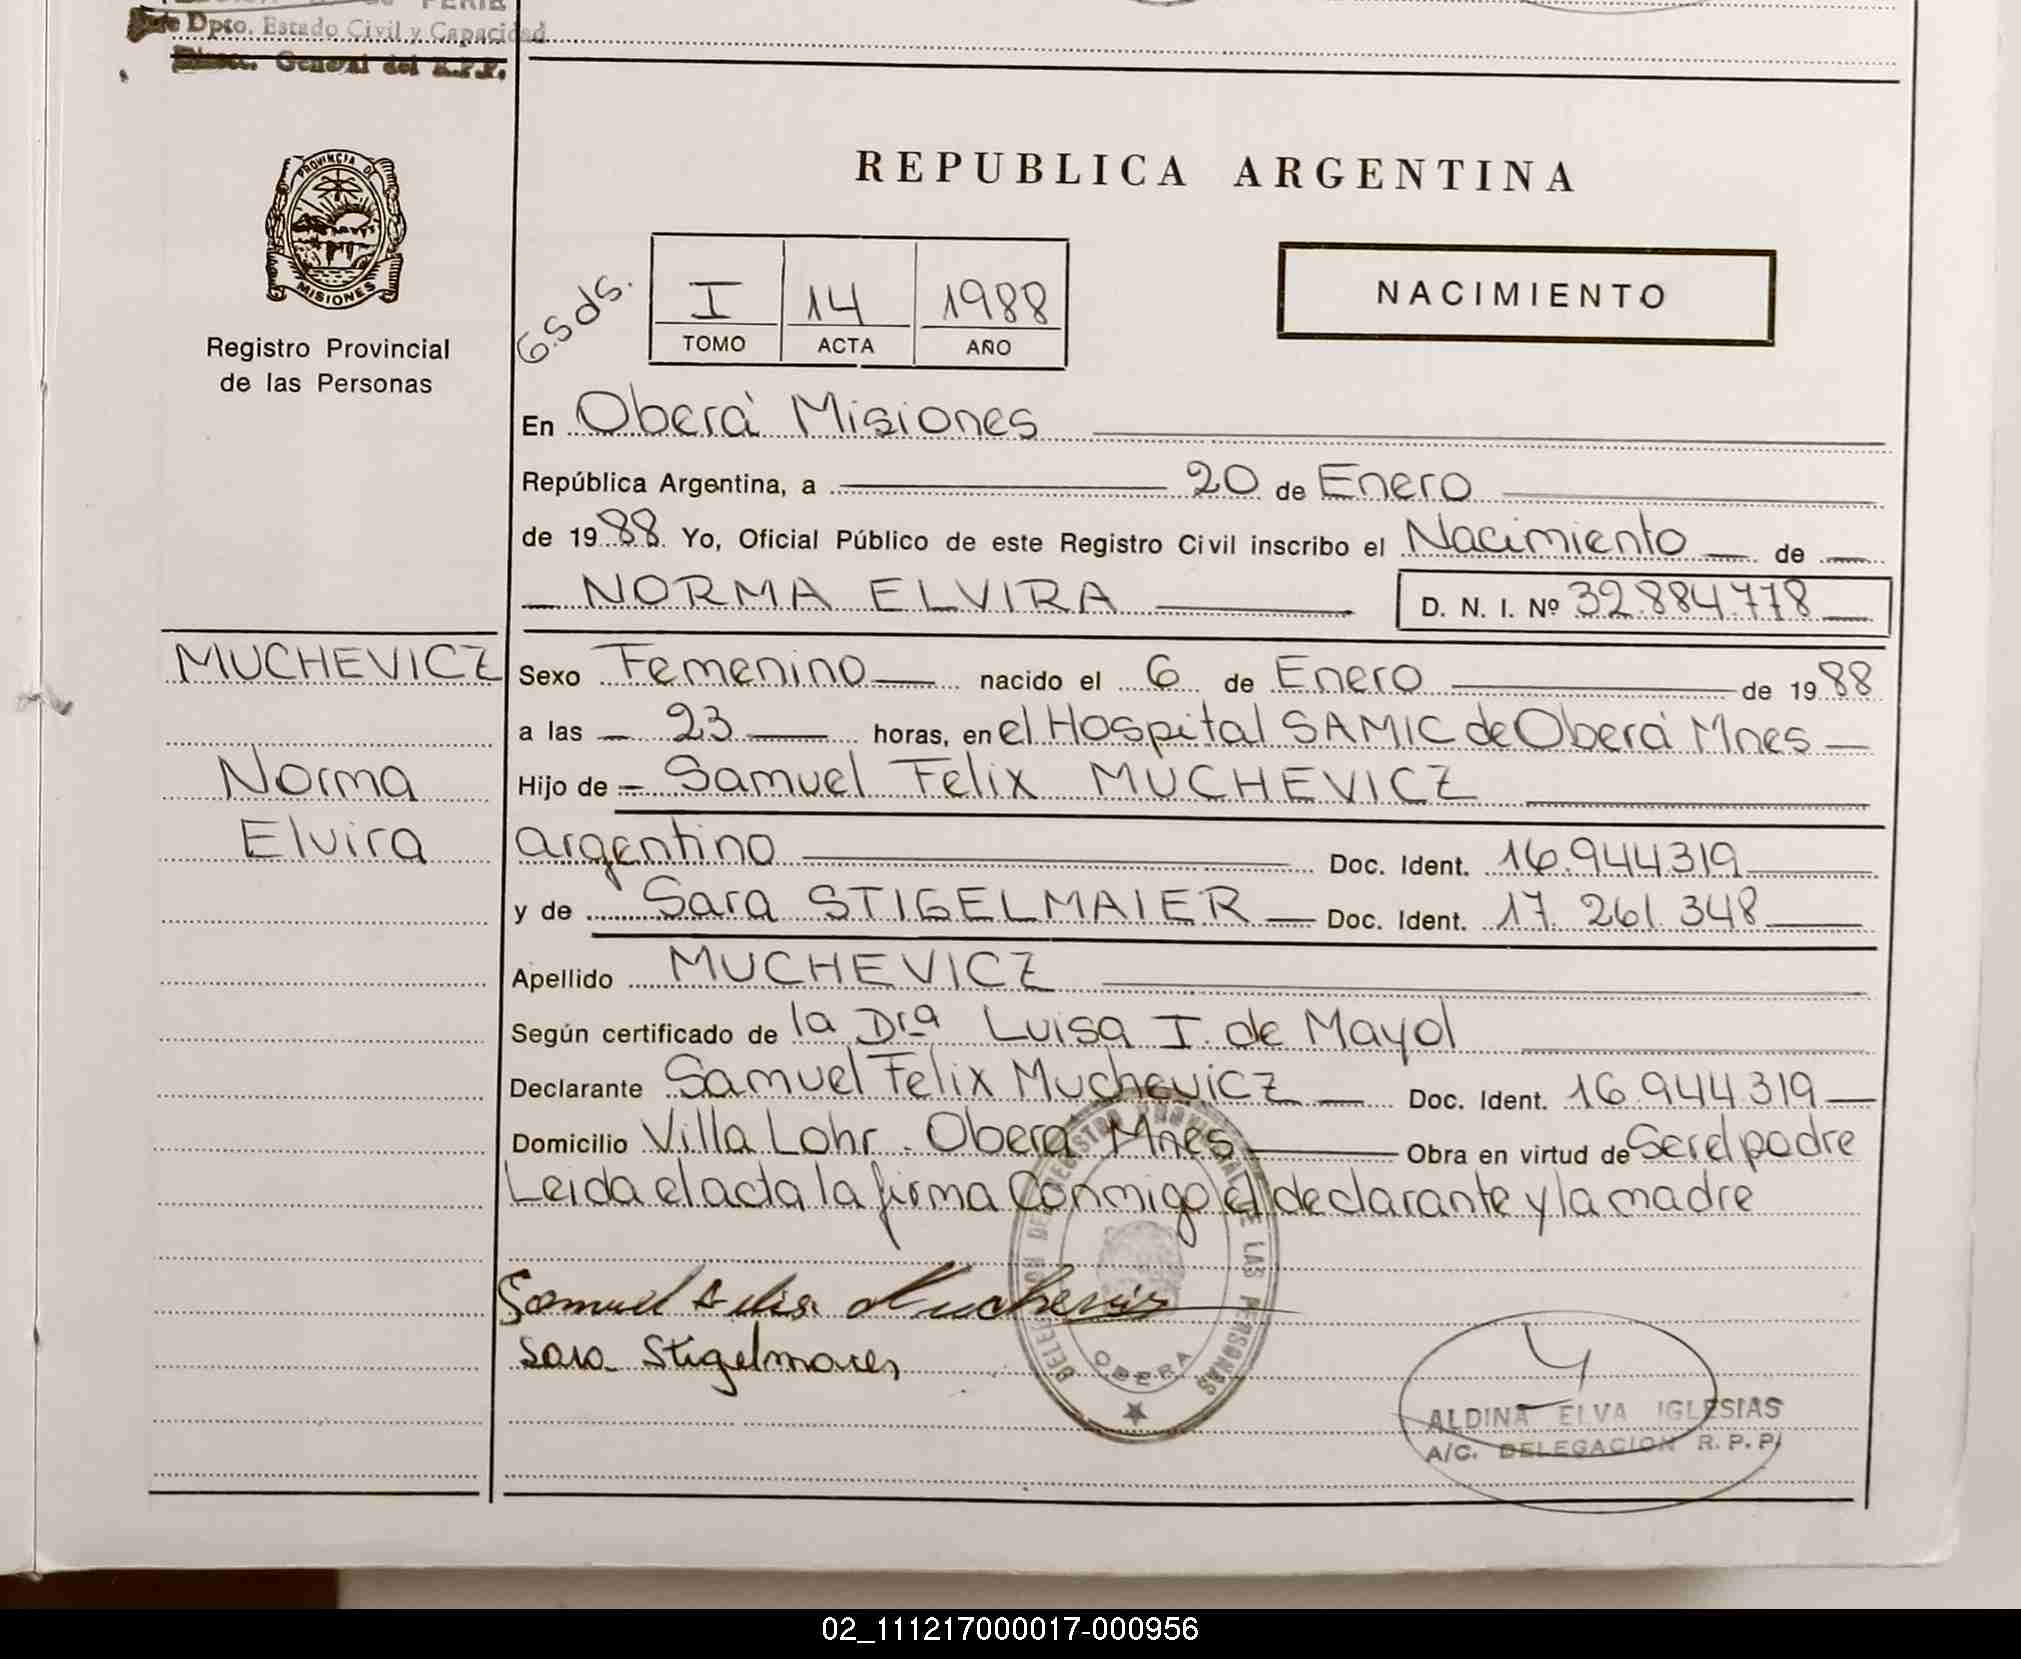 Dpto. Estado Civil y Capacidad
General del R.P.P.
PROVINCIA DE
MISIONES
Registro Provincial
de las Personas
REPUBLICA ARGENTINA
I 14 1988
TOMO ACTA AÑO
NACIMIENTO
En Oberá Misiones
República Argentina, a 20 de Enero
de 1988 Yo, Oficial Público de este Registro Civil inscribo el Nacimiento de
NORMA ELVIRA D. N. I. Nº 32.884.778
MUCHEVICZ
Norma
Elvira
Sexo Femenino nacido el 6 de Enero de 1988
a las 23 horas, en el Hospital SAMIC de Oberá Mnes
Hijo de Samuel Felix MUCHEVICZ
argentino Doc. Ident. 16.944.319
y de Sara STIGELMAIER Doc. Ident. 17.261.348
Apellido MUCHEVICZ
Según certificado de la Drª Luisa I. de Mayol
Declarante Samuel Felix Muchevicz Doc. Ident. 16.944.319
Domicilio Villa Lohr. Oberá Mnes Obra en virtud de Ser el padre
Leida el acta la firma Conmigo el declarante y la madre
DELEGACION DEL REGISTRO PROVINCIAL DE LAS PERSONAS
OBERA
ALDINA ELVA IGLESIAS
A/C. DELEGACION R.P.P.
02_111217000017-000956